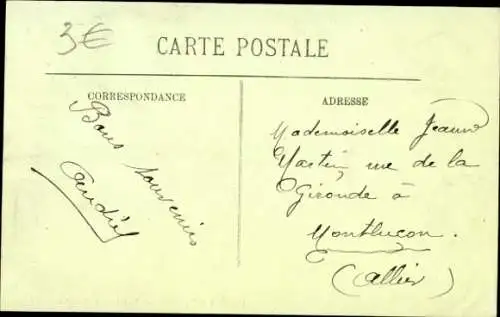 3€
CARTE POSTALE
CORRESPONDANCE
Bons souvenirs
ADRESSE
Mademoiselle Jeanne
Martin, rue de la
Gironde à
Montluçon.
(Allier)